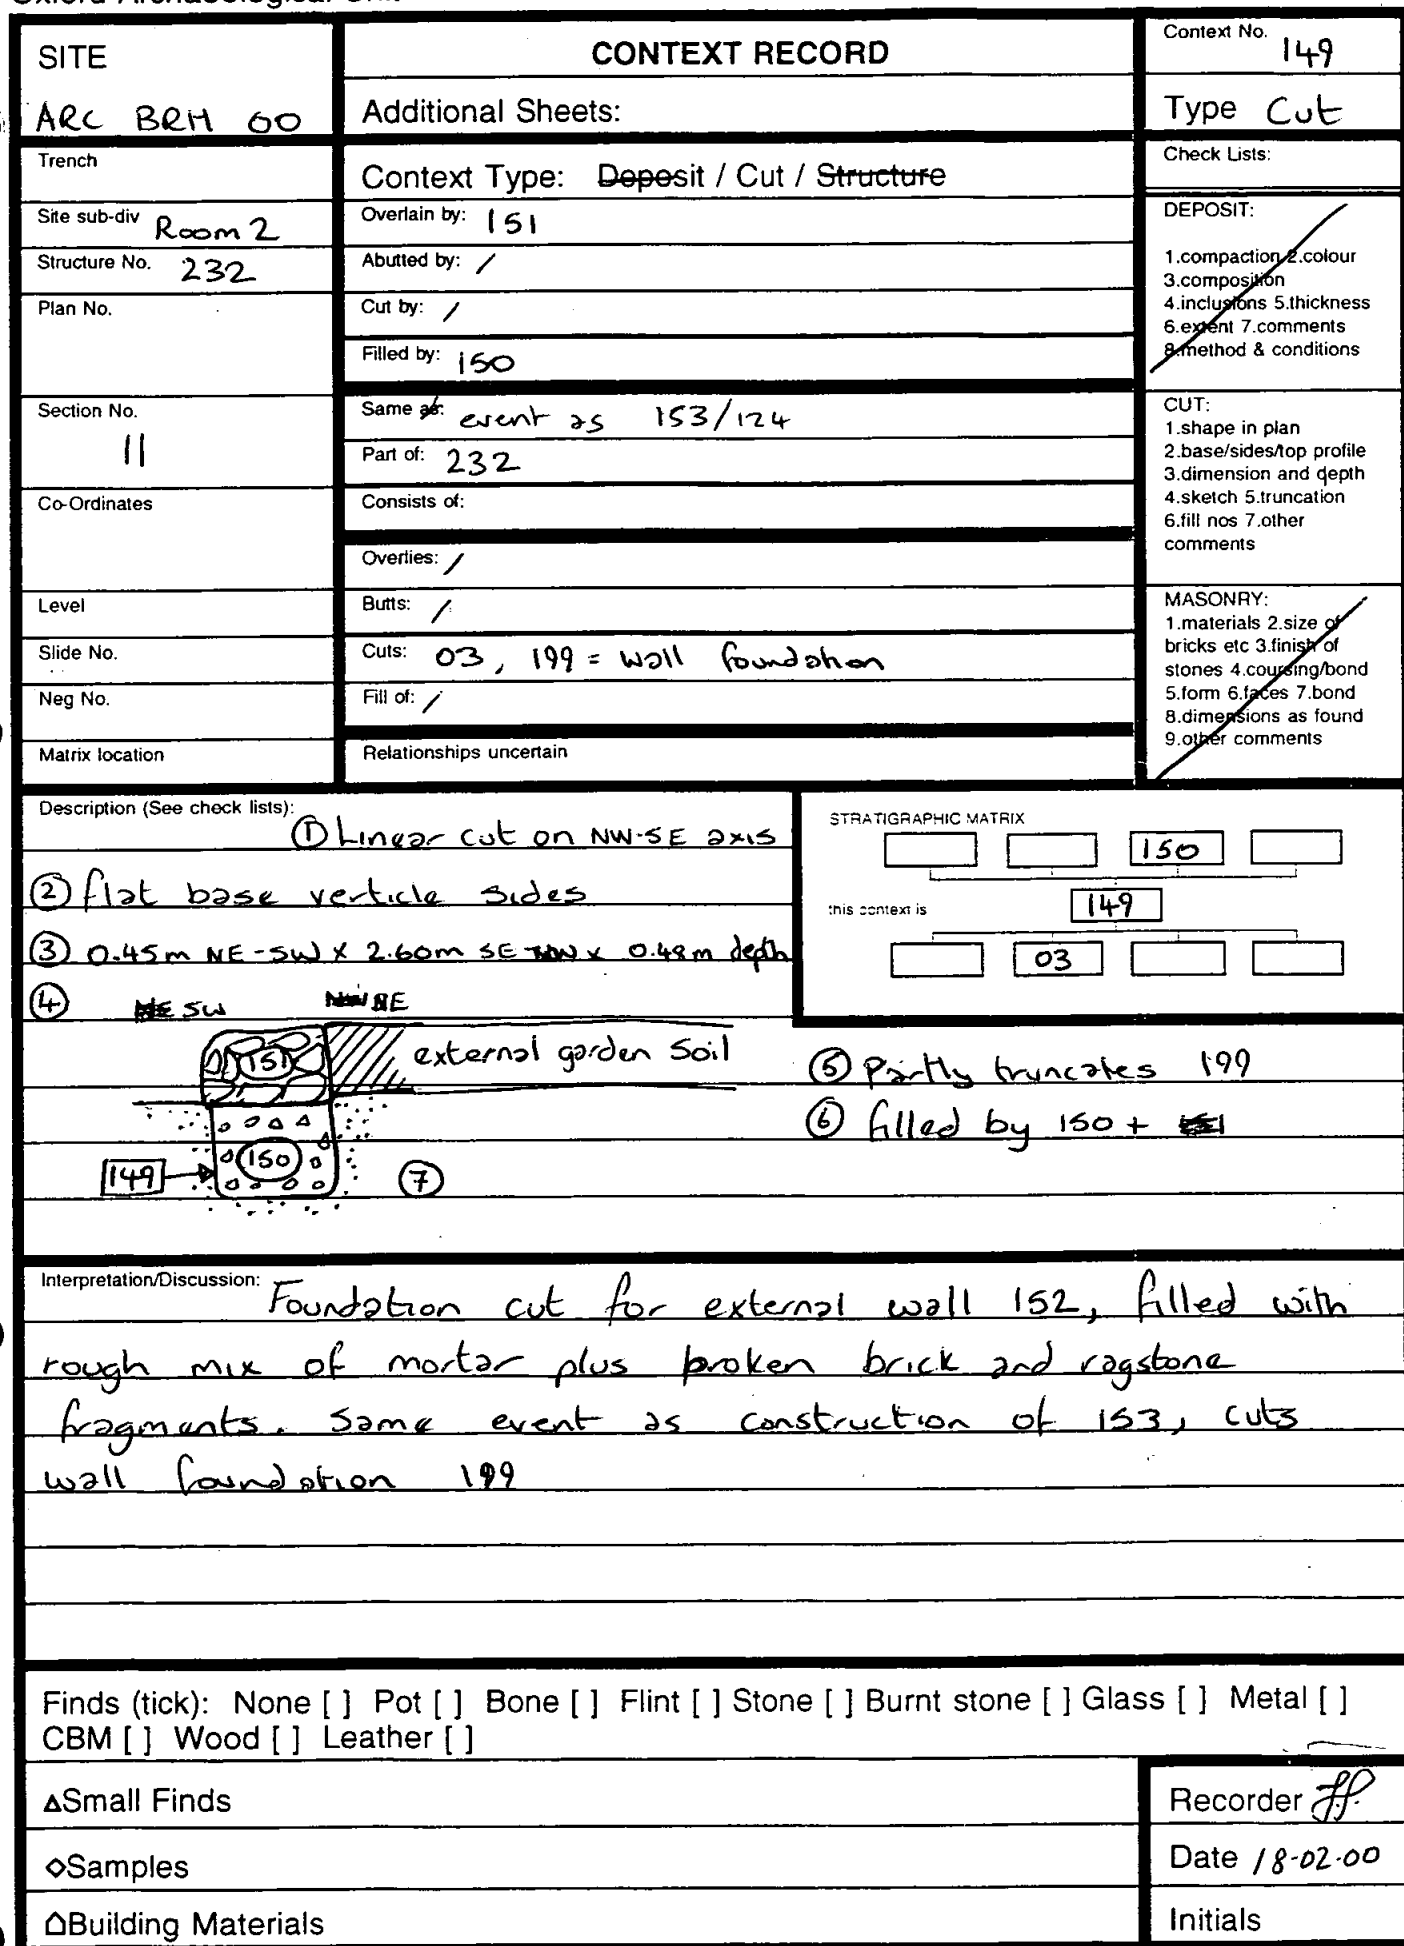 SITE
ARC BRH 00
CONTEXT RECORD
Additional Sheets:
Context No. 149
Type Cut
Trench
Site sub-div Room 2
Structure No. 232
Plan No.
Section No.
11
Co-Ordinates
Level
Slide No.
Neg No.
Matrix location
Context Type: Deposit / Cut / Structure
Overlain by: 151
Abutted by: /
Cut by: /
Filled by: 150
Same as: event as 153/124
Part of: 232
Consists of:
Overlies: /
Butts: /
Cuts: 03, 199 = wall foundation
Fill of: /
Relationships uncertain
Check Lists:
DEPOSIT:
1.compaction 2.colour
3.composition
4.inclusions 5.thickness
6.extent 7.comments
8.method & conditions
CUT:
1.shape in plan
2.base/sides/top profile
3.dimension and depth
4.sketch 5.truncation
6.fill nos 7.other
comments
MASONRY:
1.materials 2.size of
bricks etc 3.finish of
stones 4.coursing/bond
5.form 6.faces 7.bond
8.dimensions as found
9.other comments
Description (See check lists):
① Linear cut on NW-SE axis
② flat base verticle sides
③ 0.45m NE-SW x 2.60m SE NW x 0.48m depth
④ SW NE
151 external garden soil
150
149
⑦
STRATIGRAPHIC MATRIX
150
this context is 149
03
⑤ Partly truncates 199
⑥ filled by 150 +
Interpretation/Discussion: Foundation cut for external wall 152, filled with
rough mix of mortar plus broken brick and ragstone
fragments. Same event as construction of 153, cuts
wall foundation 199
Finds (tick): None [ ] Pot [ ] Bone [ ] Flint [ ] Stone [ ] Burnt stone [ ] Glass [ ] Metal [ ]
CBM [ ] Wood [ ] Leather [ ]
Small Finds
Samples
Building Materials
Recorder
Date 18-02-00
Initials